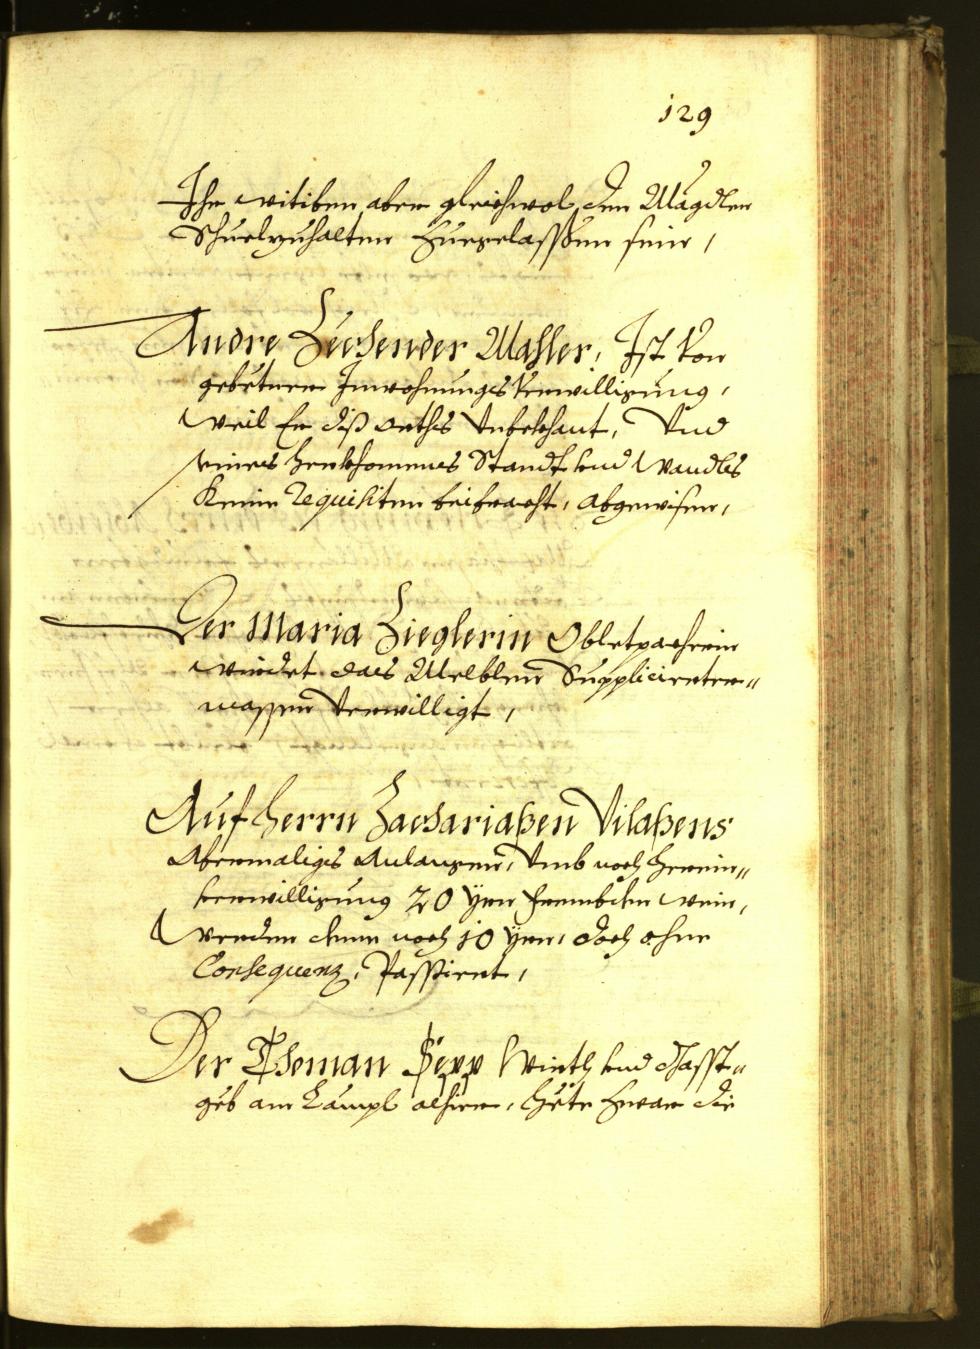 129
Ihr witiben aber gleichwol den Mägdlen
Schuelzuhalten zuegelassen sein,
Andre Zechender Mahler, Ist von
gebetner Inwohnungs verwilligung,
weil Er diß orths Unbekhant, Und
seines herkhommens Standt und Wandls
keine Requisiten beibracht, abgewisen,
Der Maria Zieglerin Obletpacherin
wirdet das Melblen Supplicierter„
massen verwilligt,
Auf herrn Zachariaßen Vilaßens
Abermaliges Anlangen, Umb noch herein„
verwilligung 20 Yrn frembden wein,
Werden deme noch 10 Yrn, doch ohne
Consequenz, Passiert,
Der Thoman Sepp Wirth und Gasst„
geb am Lämpl alhier, hete zwar die